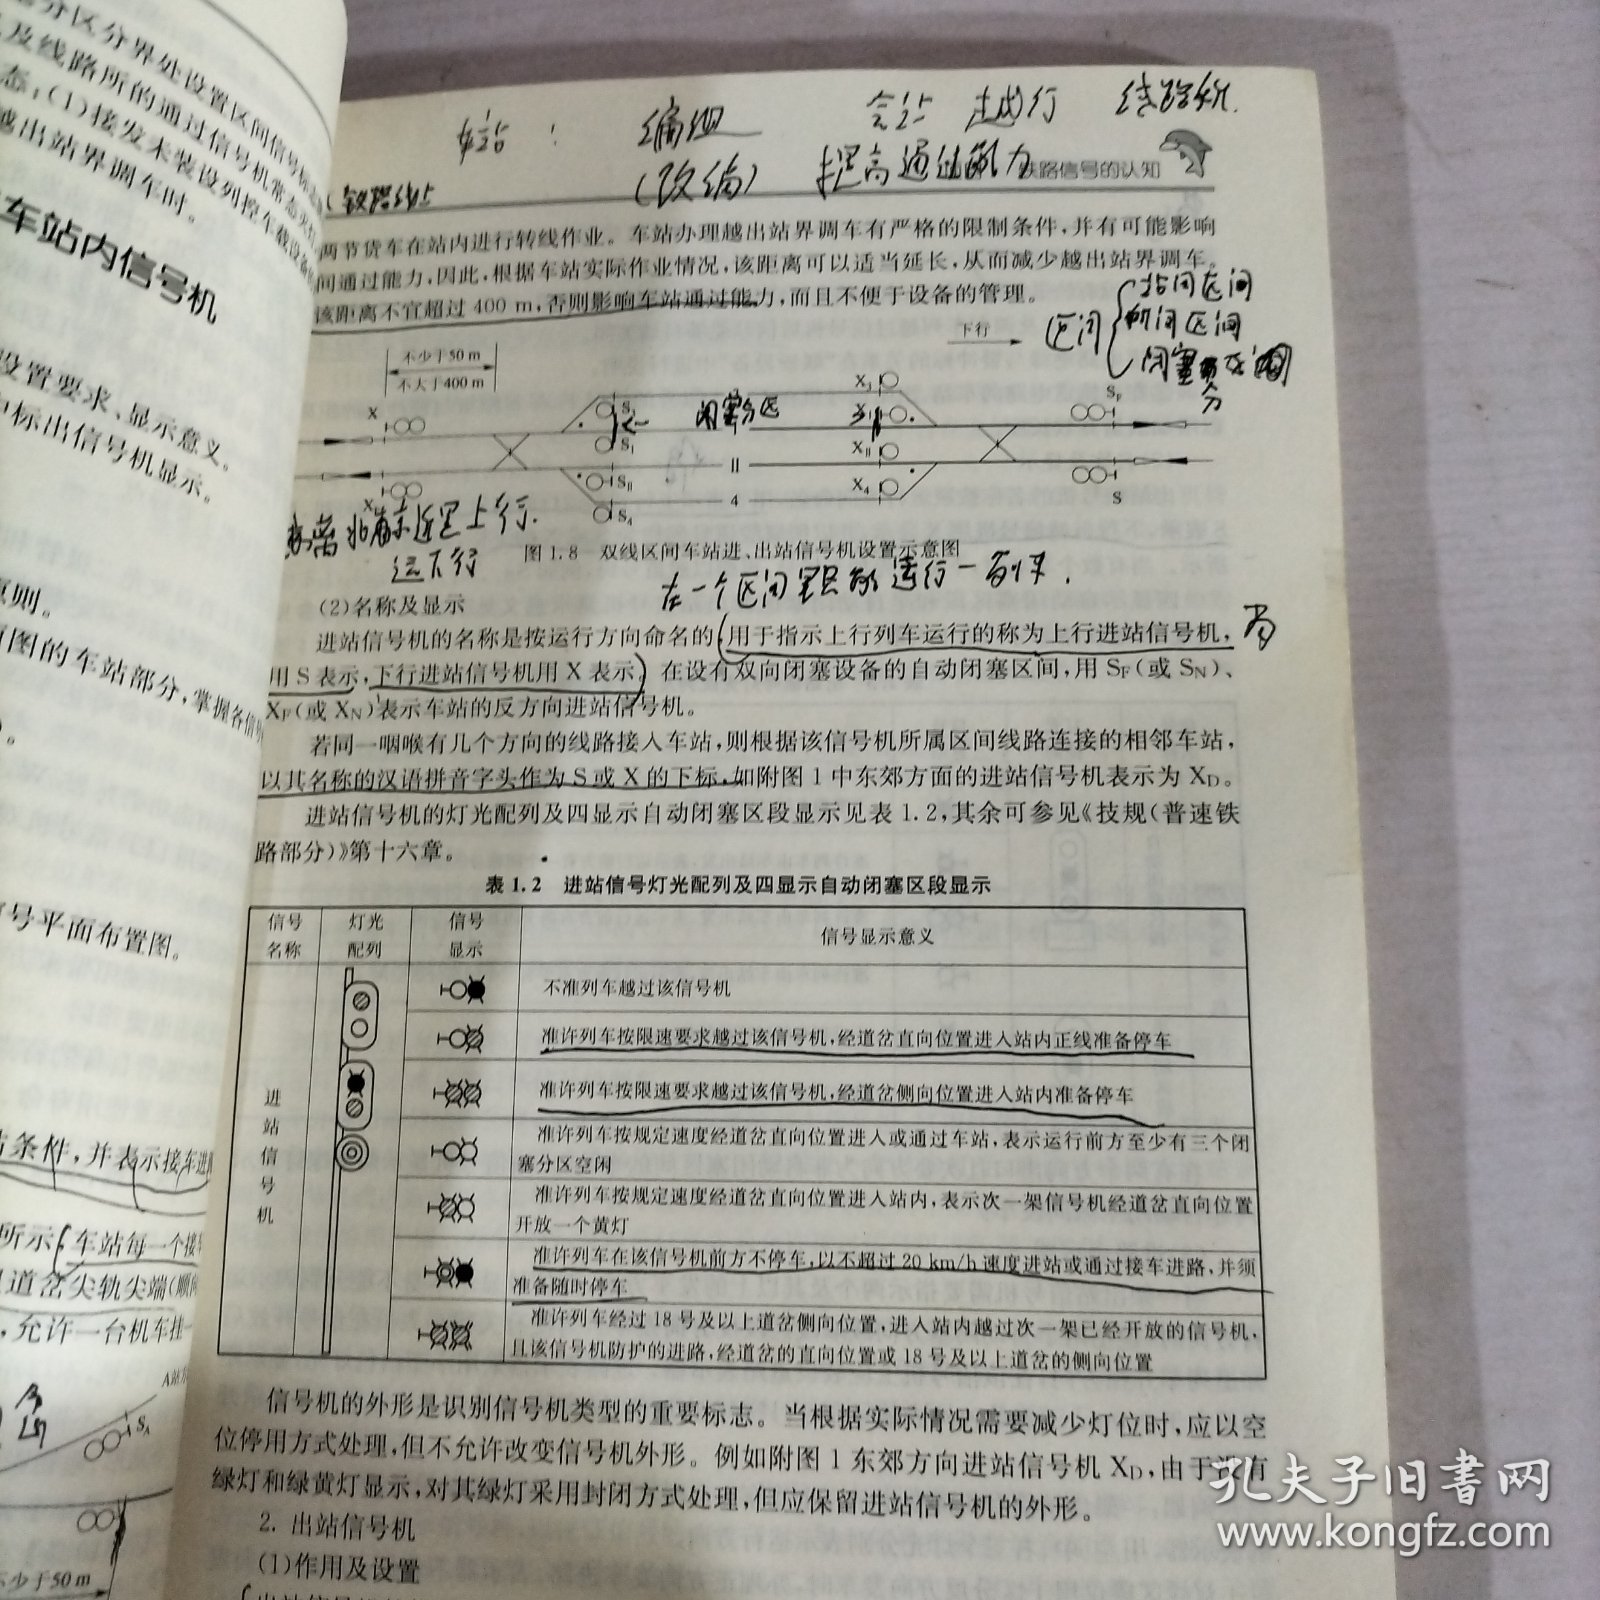 分区分界处设置区间信号标志
及线路所的通过信号机常态灭灯
态;(1)接发未装设列控车载设备
越出站界调车时。
车站内信号机
设置要求、显示意义。
中标出信号机显示。
原则。
图的车站部分,掌握各信号
号平面布置图。
站条件,并表示接车进
所示,车站每一个接
道岔尖轨尖端(顺
,允许一台机车挂一
A站
S_A
不少于50 m
编组
会让 越行 线路所.
(改编) 提高通过能力
铁路信号的认知
两节货车在站内进行转线作业。车站办理越出站界调车有严格的限制条件,并有可能影响
间通过能力,因此,根据车站实际作业情况,该距离可以适当延长,从而减少越出站界调车。
该距离不宜超过 400 m,否则影响车站通过能力,而且不便于设备的管理。
站间区间
区间
所间区间
闭塞分区
下行
不少于50 m
不大于400 m
X
S₁
S_II
S₄
闭塞分区
II
4
X₃
X_II
X₄
S_F
S
离北京近是上行.
远下行
图 1.8 双线区间车站进、出站信号机设置示意图
在一个区间里只能运行一列车.
(2)名称及显示
进站信号机的名称是按运行方向命名的,用于指示上行列车运行的称为上行进站信号机,
用 S 表示,下行进站信号机用 X 表示。在设有双向闭塞设备的自动闭塞区间,用 S_F(或 S_N)、
X_F(或 X_N)表示车站的反方向进站信号机。
若同一咽喉有几个方向的线路接入车站,则根据该信号机所属区间线路连接的相邻车站,
以其名称的汉语拼音字头作为 S 或 X 的下标,如附图 1 中东郊方面的进站信号机表示为 X_D。
进站信号机的灯光配列及四显示自动闭塞区段显示见表 1.2,其余可参见《技规(普速铁
路部分)》第十六章。
表 1.2 进站信号灯光配列及四显示自动闭塞区段显示
信号名称
灯光配列
信号显示
信号显示意义
进站信号机
不准列车越过该信号机
准许列车按限速要求越过该信号机,经道岔直向位置进入站内正线准备停车
准许列车按限速要求越过该信号机,经道岔侧向位置进入站内准备停车
准许列车按规定速度经道岔直向位置进入或通过车站,表示运行前方至少有三个闭
塞分区空闲
准许列车按规定速度经道岔直向位置进入站内,表示次一架信号机经道岔直向位置
开放一个黄灯
准许列车在该信号机前方不停车,以不超过 20 km/h 速度进站或通过接车进路,并须
准备随时停车
准许列车经过 18 号及以上道岔侧向位置,进入站内越过次一架已经开放的信号机,
且该信号机防护的进路,经道岔的直向位置或 18 号及以上道岔的侧向位置
信号机的外形是识别信号机类型的重要标志。当根据实际情况需要减少灯位时,应以空
位停用方式处理,但不允许改变信号机外形。例如附图 1 东郊方向进站信号机 X_D,由于没有
绿灯和绿黄灯显示,对其绿灯采用封闭方式处理,但应保留进站信号机的外形。
2. 出站信号机
(1)作用及设置
孔夫子旧书网
www.kongfz.com